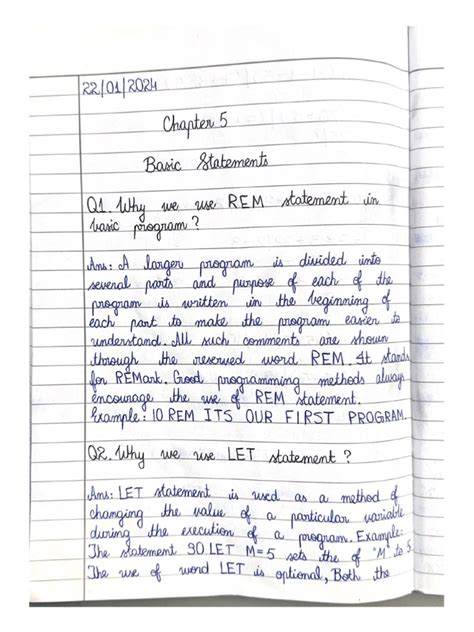 22/01/2024
Chapter 5
Basic Statements
Q1. Why we use REM statement in
basic program?
Ans: A larger program is divided into
several parts and purpose of each of the
program is written in the beginning of
each part to make the program easier to
understand. All such comments are shown
through the reserved word REM. It stands
for REMark. Good programming methods always
encourage the use of REM statement.
Example: 10 REM ITS OUR FIRST PROGRAM.
Q2. Why we use LET statement?
Ans: LET statement is used as a method of
changing the value of a particular variable
during the execution of a program. Example:
The statement 90 LET M=5 sets the of "M" to 5.
The use of word LET is optional, Both the